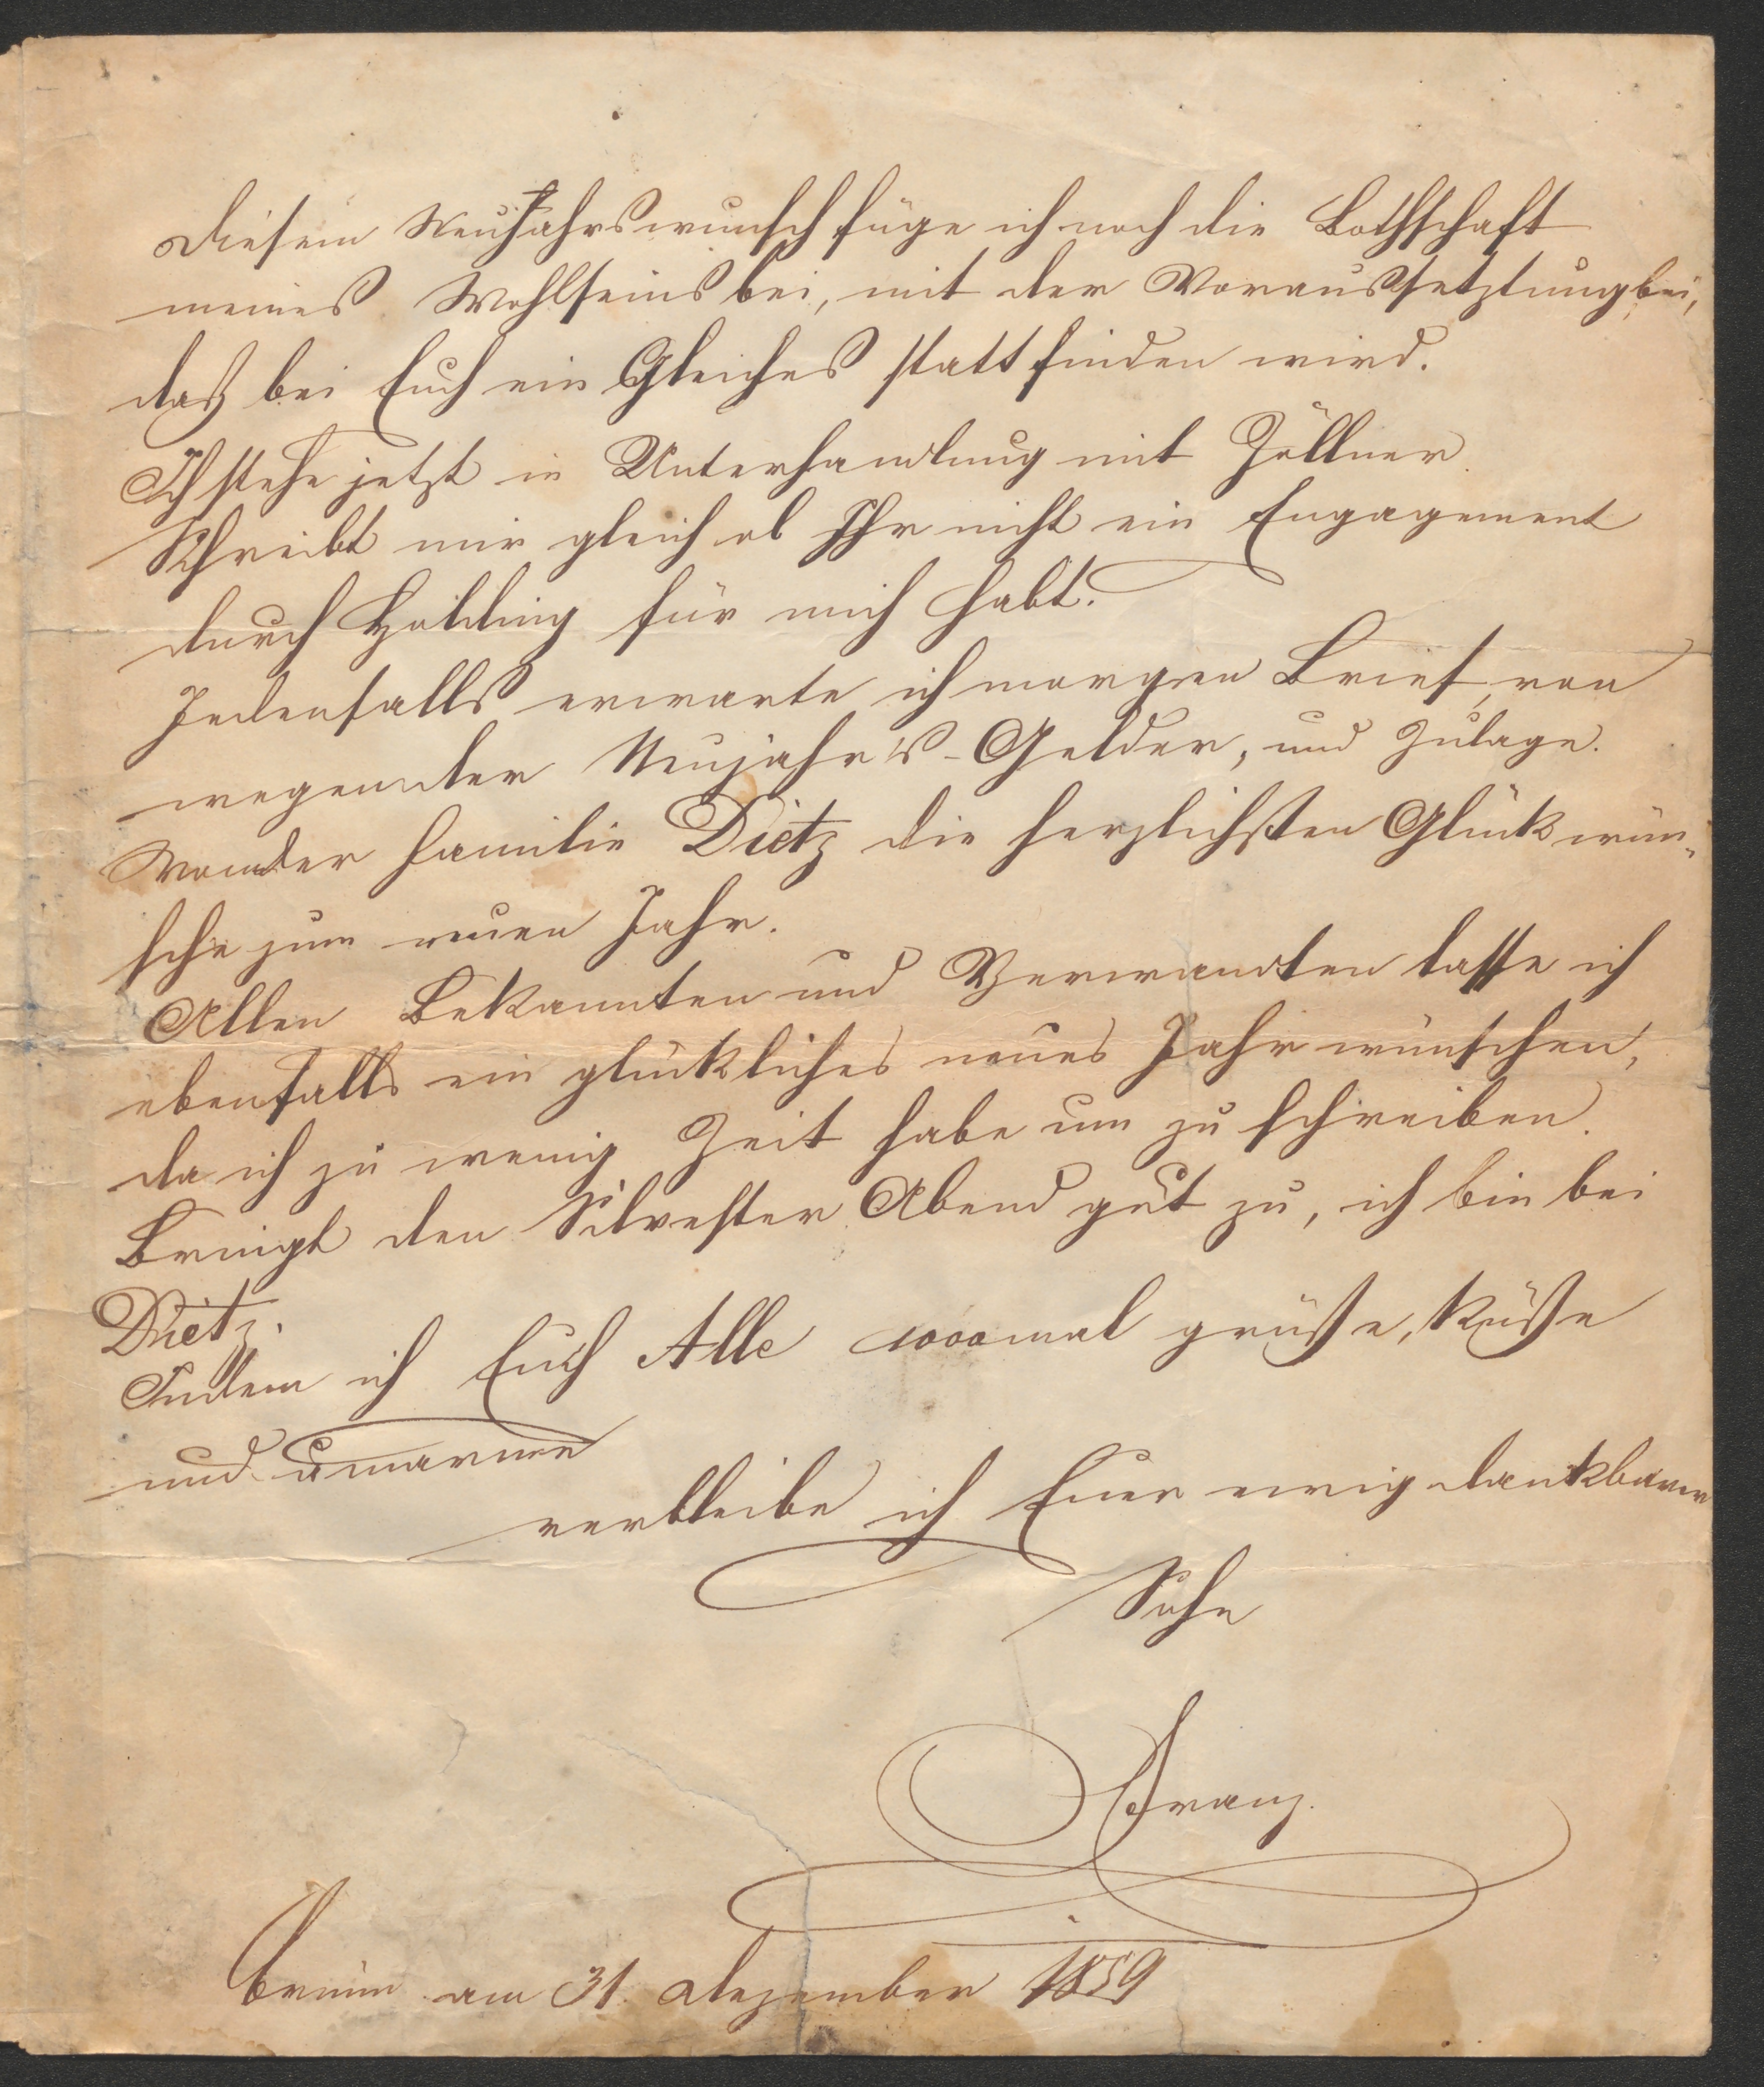 Diesem Neujahrswunsch füge ich noch die Bothschaft
meines Wohlseins bei, mit der Voraussetztung bei,
daß bei Euch ein Gleiches stattfinden wird.
Ich stehe jetzt in Unterhandlung mit Zöllner.
Schreibt mir gleich ob Ihr nicht ein Engagement
durch Holding für mich habt.
Jedenfalls erwarte ich morgen Brief, von
wegen der Neujahrs-Gelder, und Zulage.
Von der Familie Dietz die herzlichsten Glückwün-
sche zum neuen Jahr.
Allen Bekannten und Verwandten lasse ich
ebenfalls ein glückliches neues Jahr wünschen,
da ich zu wenig Zeit habe um zu schreiben.
Bringt den Silvester Abend gut zu, ich bin bei
Dietz.
Indem ich Euch Alle 1000mal grüße, küße
und umarme
verbleibe ich Euer ewig dankbarer
Sohn
Franz.
Brünn am 31. Dezember 1859